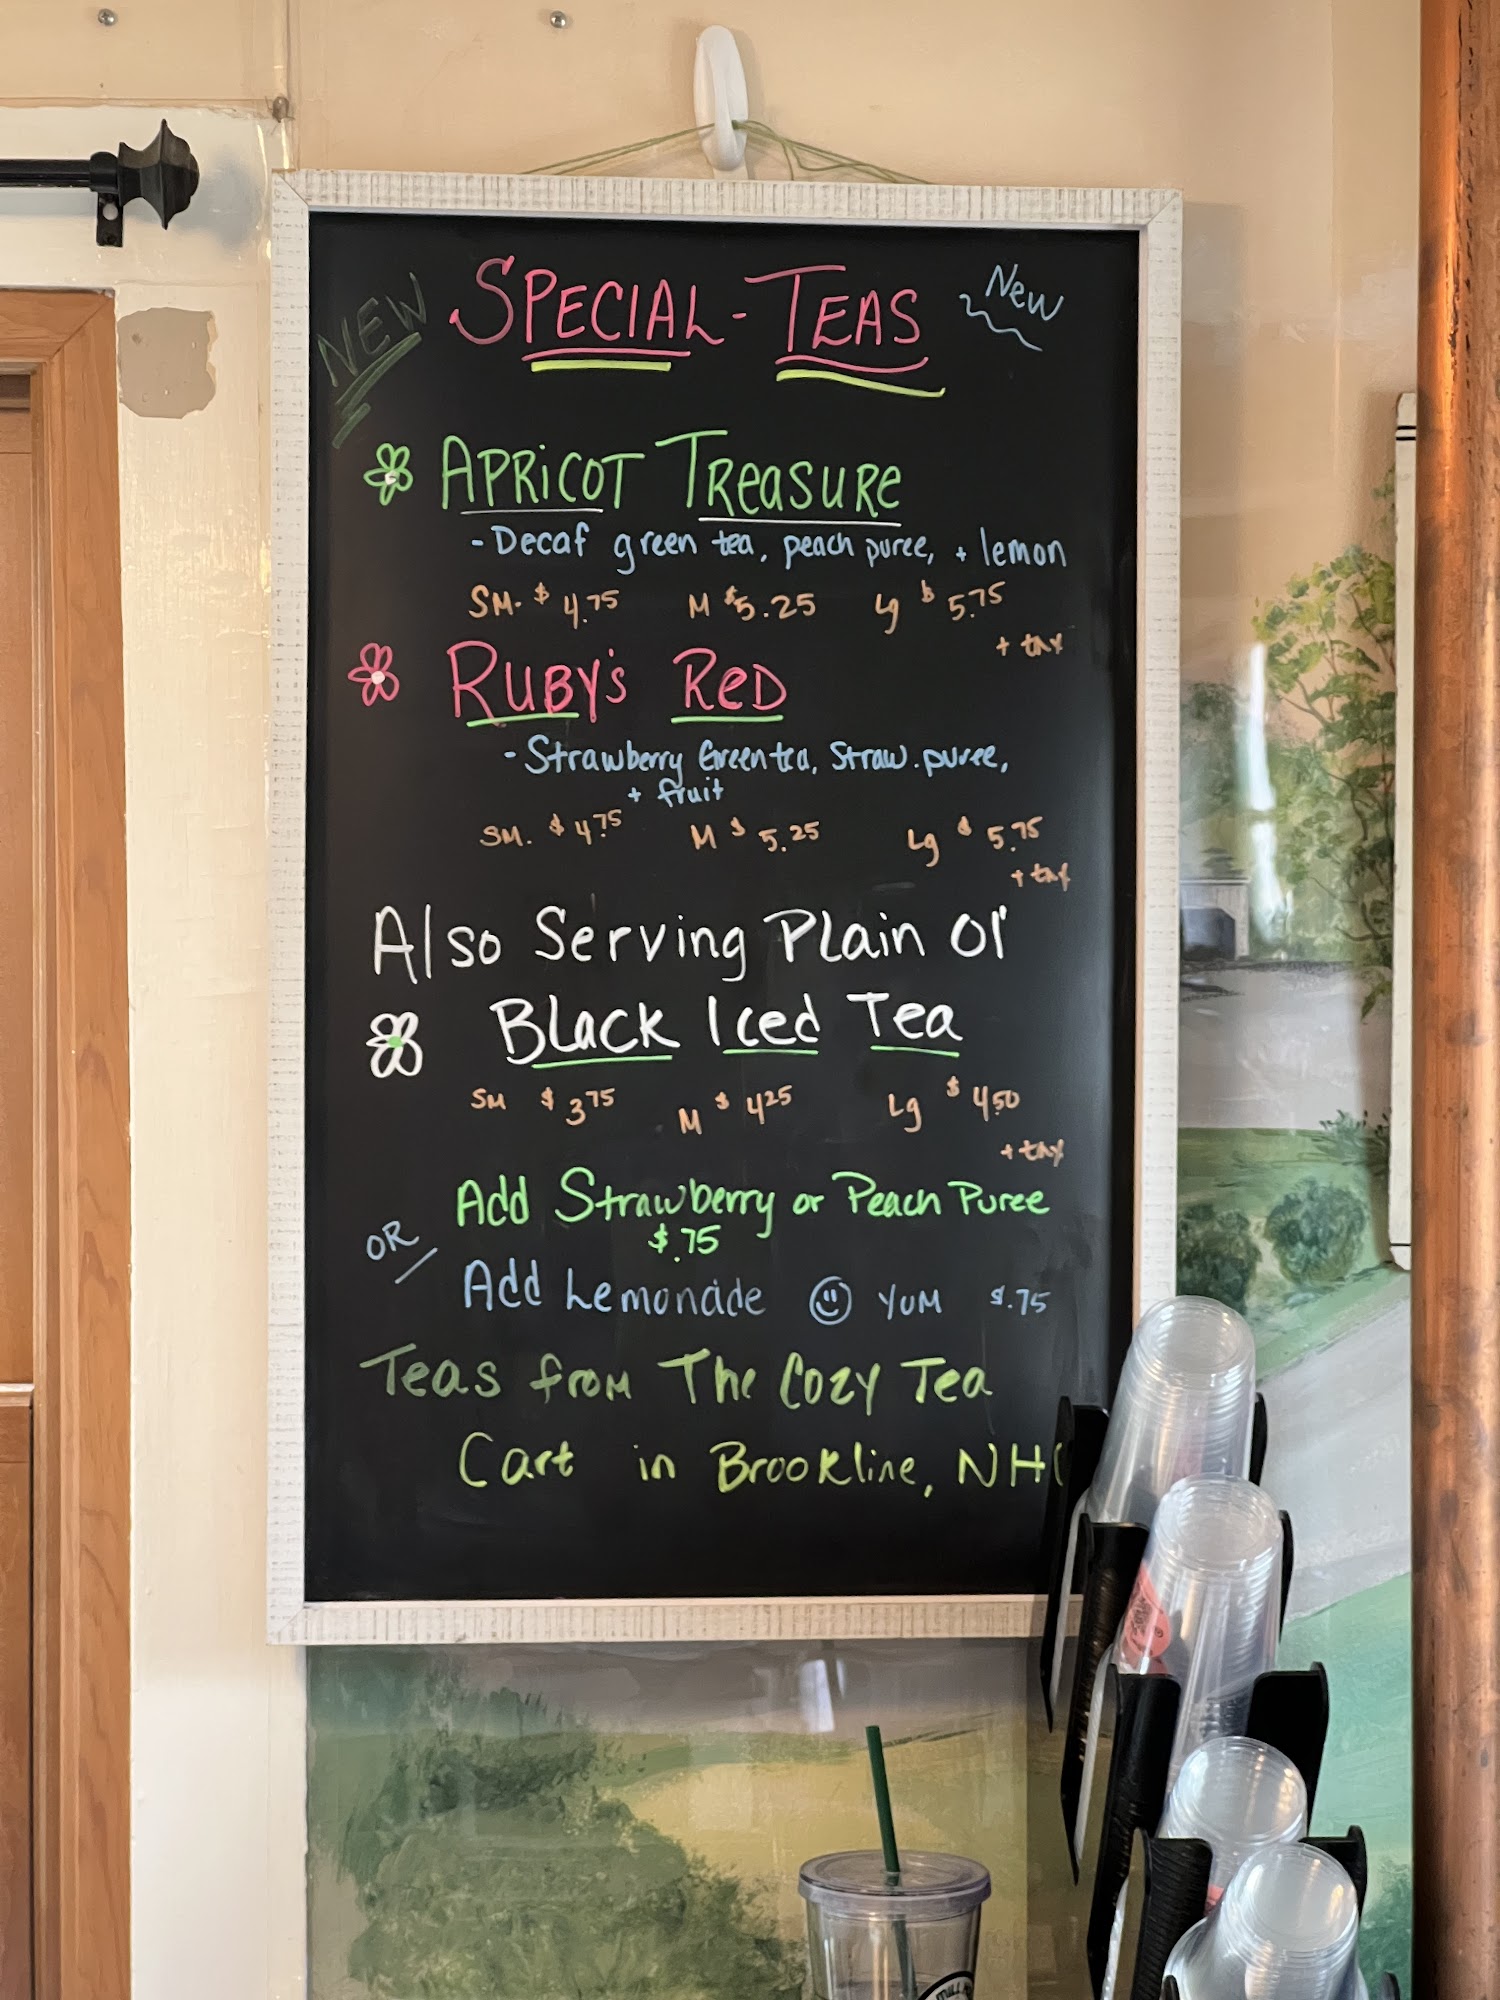 NEW SPECIAL-TEAS New
APRICOT TREASURE
-Decaf green tea, peach puree, + lemon
SM. $4.75 M $5.25 Lg $5.75
+ tax
RUBY'S RED
-Strawberry Green tea, Straw. puree,
+ fruit
SM. $4.75 M $5.25 Lg $5.75
+ tax
Also Serving Plain Ol'
Black Iced Tea
SM $3.75 M $4.25 Lg $4.50
+ tax
Add Strawberry or Peach Puree
$.75
OR
Add Lemonade YUM $.75
Teas from The Cozy Tea
Cart in Brookline, NH